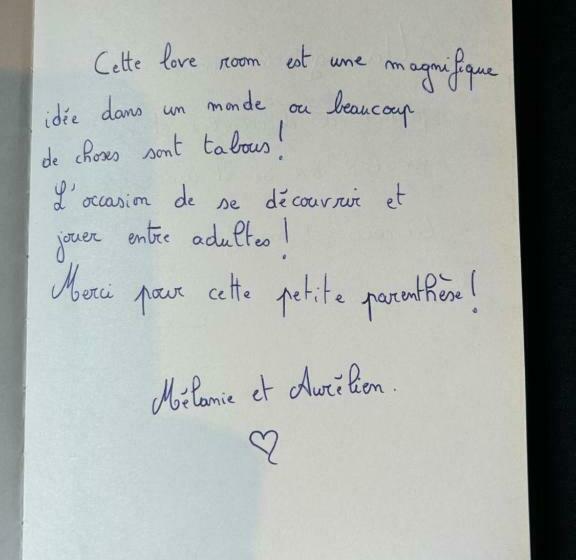 Cette love room est une magnifique
idée dans un monde ou beaucoup
de choses sont tabous!
L'occasion de se découvrir et
jouer entre adultes!
Merci pour cette petite parenthèse!
Mélanie et Aurélien.
♡